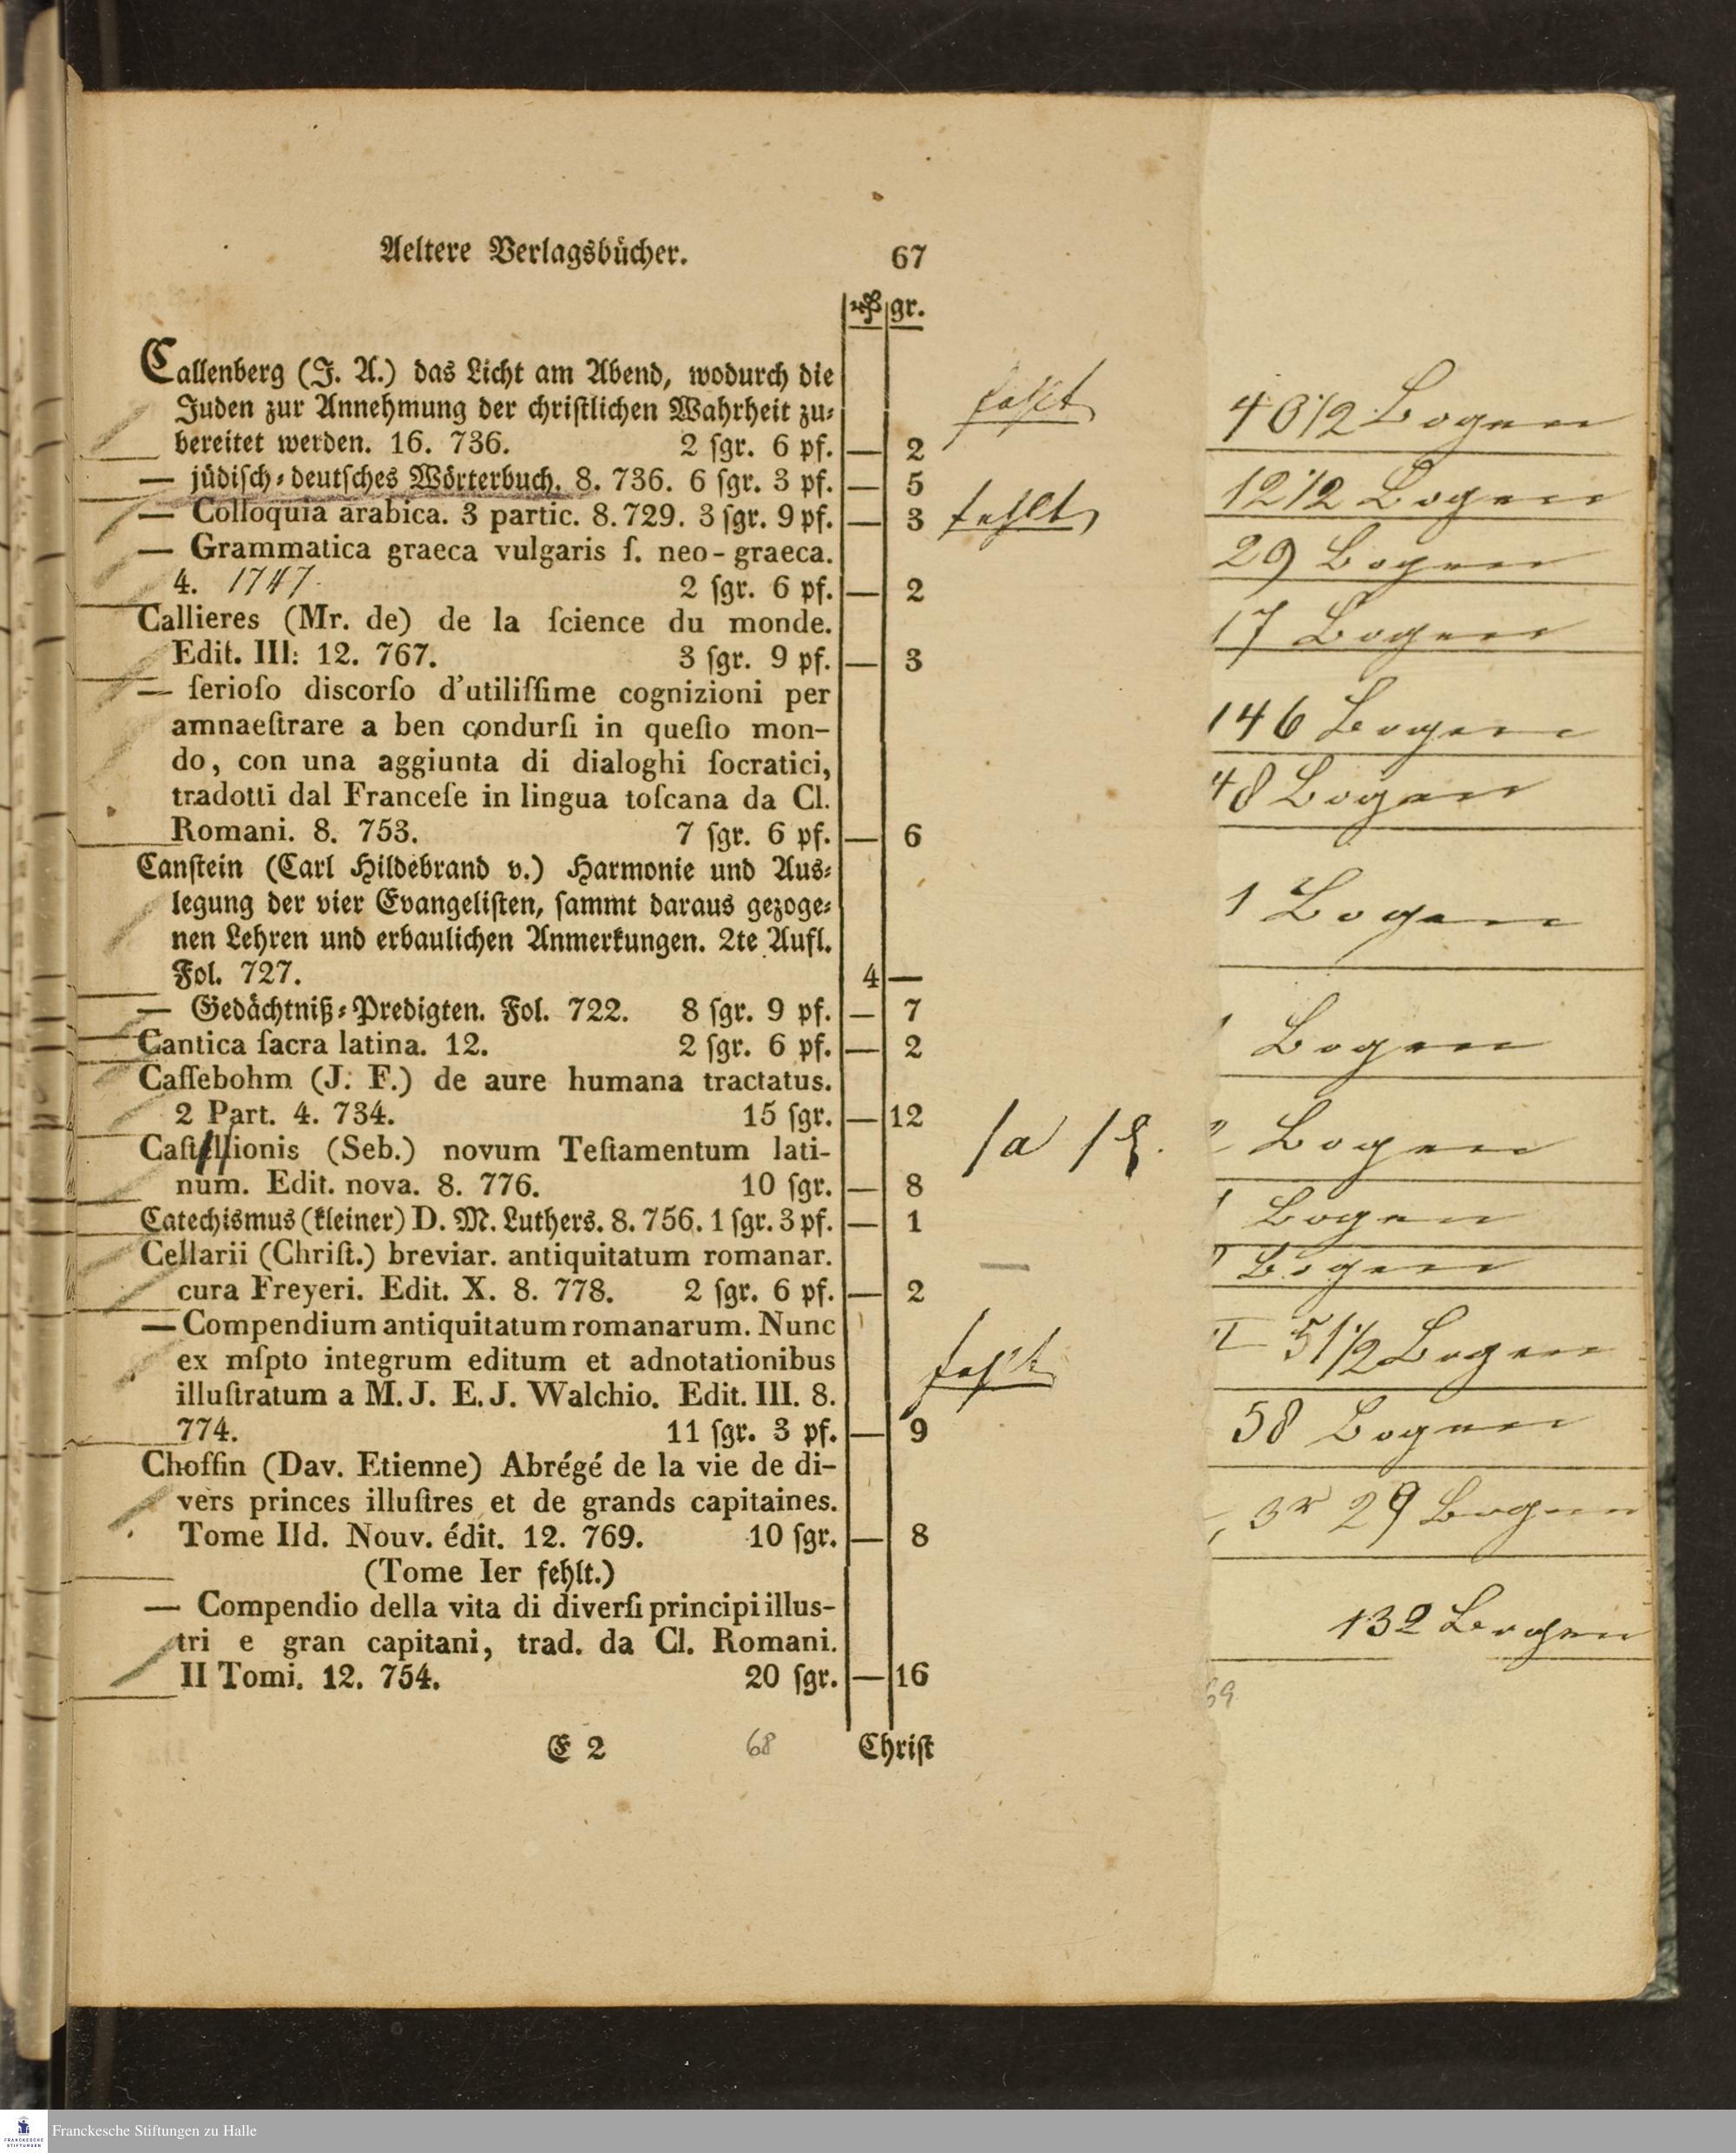 Aeltere Verlagsbücher. 67
gr.
Callenberg (J. A.) das Licht am Abend, wodurch die
Juden zur Annehmung der chriſtlichen Wahrheit zu⸗
bereitet werden. 16. 736. 2 ſgr. 6 pf. — 2
— jüdiſch⸗deutſches Wörterbuch. 8. 736. 6 ſgr. 3 pf. — 5
— Colloquia arabica. 3 partic. 8. 729. 3 ſgr. 9 pf. — 3
— Grammatica graeca vulgaris ſ. neo-graeca.
4. 1747. 2 ſgr. 6 pf. — 2
Callieres (Mr. de) de la ſcience du monde.
Edit. III: 12. 767. 3 ſgr. 9 pf. — 3
— ſerioſo discorſo d'utiliſſime cognizioni per
amnaeſtrare a ben condurſi in queſto mon-
do, con una aggiunta di dialoghi ſocratici,
tradotti dal Franceſe in lingua toſcana da Cl.
Romani. 8. 753. 7 ſgr. 6 pf. — 6
Canſtein (Carl Hildebrand v.) Harmonie und Aus⸗
legung der vier Evangeliſten, ſammt daraus gezoge⸗
nen Lehren und erbaulichen Anmerkungen. 2te Aufl.
Fol. 727. 4 —
— Gedächtniß⸗Predigten. Fol. 722. 8 ſgr. 9 pf. — 7
Cantica ſacra latina. 12. 2 ſgr. 6 pf. — 2
Caſſebohm (J. F.) de aure humana tractatus.
2 Part. 4. 734. 15 ſgr. — 12
Caſtellionis (Seb.) novum Teſtamentum lati-
num. Edit. nova. 8. 776. 10 ſgr. — 8
Catechismus (kleiner) D. M. Luthers. 8. 756. 1 ſgr. 3 pf. — 1
Cellarii (Chriſt.) breviar. antiquitatum romanar.
cura Freyeri. Edit. X. 8. 778. 2 ſgr. 6 pf. — 2
— Compendium antiquitatum romanarum. Nunc
ex mſpto integrum editum et adnotationibus
illuſtratum a M. J. E. J. Walchio. Edit. III. 8.
774. 11 ſgr. 3 pf. — 9
Choffin (Dav. Etienne) Abrégé de la vie de di-
vers princes illuſtres et de grands capitaines.
Tome IId. Nouv. édit. 12. 769. 10 ſgr. — 8
(Tome Ier fehlt.)
— Compendio della vita di diverſi principi illus-
tri e gran capitani, trad. da Cl. Romani.
II Tomi. 12. 754. 20 ſgr. — 16
E 2 68 Chriſt
fehlt
fehlt
fehlt
40 1/2 Bogen
12 1/2 Bogen
29 Bogen
17 Bogen
146 Bogen
48 Bogen
1 Bogen
Bogen
Bogen
Bogen
Bogen
51 1/2 Bogen
58 Bogen
29 Bogen
132 Bogen
69
Franckesche Stiftungen zu Halle
FRANCKESCHE
STIFTUNGEN